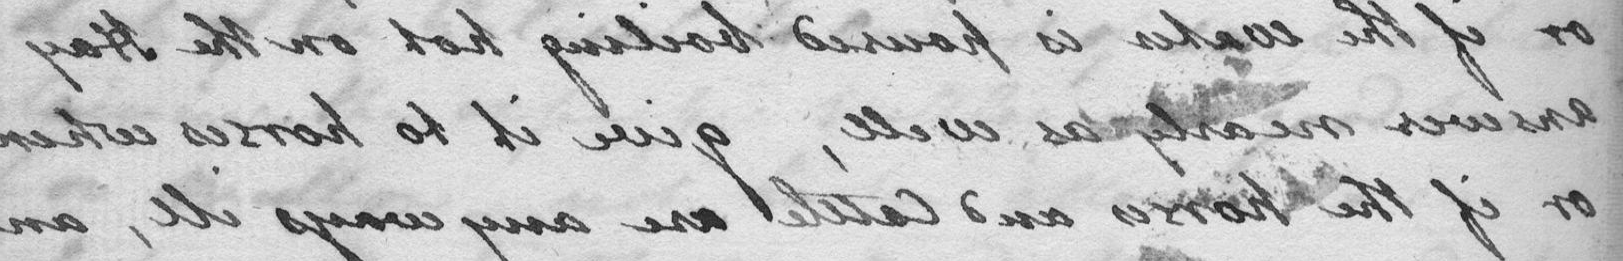 or if the water is poured boiling hot on the Hay
answers nearly as well, give it to horses when
or if the horses and Cattle are any ways ill, an